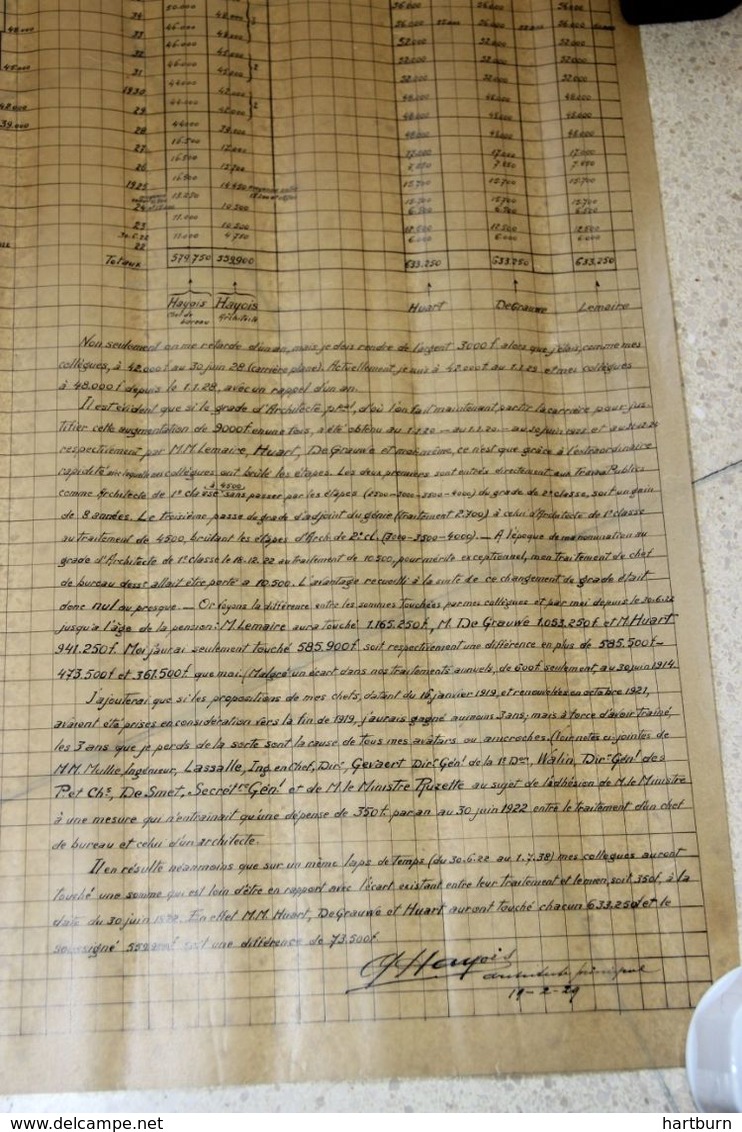 50.000 48.000 56.000 56.000 56.000
34 48.000
46.000 56.000 56.000 56.000
33 48.000
46.000 52.000 52.000 52.000
32 45.000
46.000 52.000 52.000 52.000
31 45.000
44.000 52.000 52.000 52.000
1930 42.000
44.000 48.000 48.000 48.000
29 42.000
44.000 48.000 48.000 48.000
28 39.000
16.500 48.000 48.000 48.000
27
16.500 17.000 17.000 17.000
26 12.700
16.500
1925 15.700 15.700 15.700
13.250
24 10.500 15.700 15.700 15.700
11.000 6.500 6.500
23 10.500 12.500 12.500 12.500
30.6.22 11.000 4.750 6.000 6.000 6.000
22
Totaux 579.750 559.900 633.250 633.250 633.250
Hayois Hayois Huart DeGrauwe Lemaire
chef de bureau architecte
Non seulement on me retarde d'un an, mais je dois rendre de l'argent 3000f alors que j'étais, comme mes
collègues, à 42.000f au 30 juin 28 (carrière plane). Actuellement, je suis à 42.000f au 1.1.29 et mes collègues
à 48.000f depuis le 1.1.28, avec un rappel d'un an.
Il est évident que si le grade d'Architecte ppal, d'où l'on fait maintenant partir la carrière pour jus-
tifier cette augmentation de 9000f en une fois, a été obtenu au 1.1.20 - au 1.1.20 - au 30 juin 1922 et au 31.12.20
respectivement par M.M. Lemaire, Huart, De Grauwe et moi-même, ce n'est que grâce à l'extraordinaire
rapidité avec laquelle mes collègues ont brûlé les étapes. Les deux premiers sont entrés directement aux Travaux Publics
comme Architecte de 1e classe à 4500 sans passer par les étapes (2500-3000-3500-4000) du grade de 2e classe, soit un gain
de 8 années. Le troisième passe du grade d'adjoint du génie (traitement 2.700) à celui d'Architecte de 1e classe
au traitement de 4500, brûlant les étapes d'Arch. de 2e cl. (3000-3500-4000). — A l'époque de ma nomination au
grade d'Architecte de 1e classe le 18-12.22 au traitement de 10.500, pour mérite exceptionnel, mon traitement de chef
de bureau dess. allait être porté à 10.500. L'avantage recueilli à la suite de ce changement de grade était
donc nul ou presque. — Or voyons la différence entre les sommes touchées par mes collègues et par moi depuis le 30.6.22
jusqu'à l'âge de la pension: M. Lemaire aura touché 1.165.250f, M. De Grauwe 1.053.250f et M. Huart
941.250f. Moi j'aurai seulement touché 585.900f soit respectivement une différence en plus de 585.500f-
473.500f et 361.500f que moi. (Malgré un écart dans nos traitements annuels, de 600f seulement, au 30 juin 1914
J'ajouterai que si les propositions de mes chefs, datant du 16 janvier 1919, et renouvelées en octobre 1921,
avaient été prises en considération vers la fin de 1919, j'aurais gagné au moins 3 ans; mais à force d'avoir traîné,
les 3 ans que je perds de la sorte sont la cause de tous mes avatars ou anicroches. (Voir notes ci-jointes de
M.M. Mullie, Ingénieur, Lassalle, Ing. en Chef, Dirr, Gevaert Dirr Génl de la 1e Don, Walin, Dirr Génl des
P. et Chs, De Smet, Secrétre Génl et de M. le Ministre Ruzette au sujet de l'adhésion de M. le Ministre
à une mesure qui n'entraînait qu'une dépense de 350f par an au 30 juin 1922 entre le traitement d'un chef
de bureau et celui d'un architecte.
Il en résulte néanmoins que sur un même laps de temps (du 30.6.22 au 1.7.38) mes collègues auront
touché une somme qui est loin d'être en rapport avec l'écart existant entre leur traitement et le mien, soit 350f, à la
date du 30 juin 1922. En effet M.M. Huart, De Grauwe et Huart auront touché chacun 633.250f et le
soussigné 559.900f soit une différence de 73.500f.
Hayois
architecte principal
19-2-29
hartburn